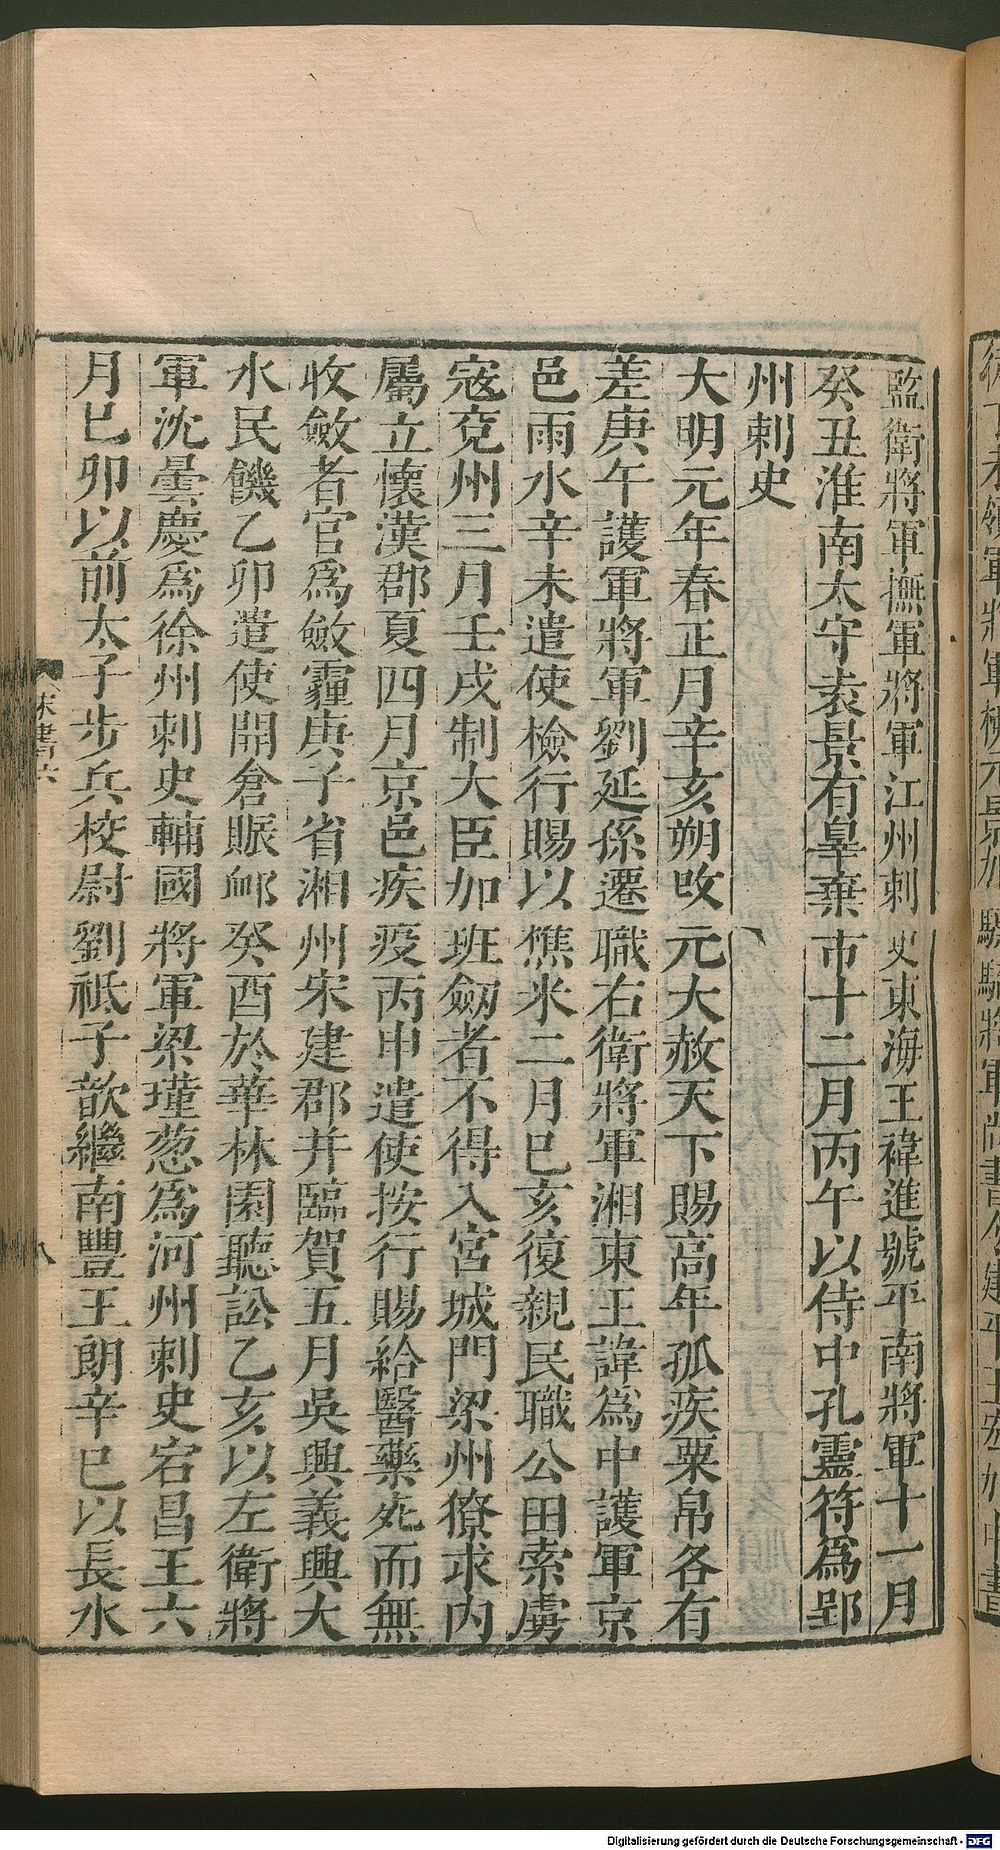 監衛將軍撫軍將軍江州刺史東海王褘進號平南將軍十一月
癸丑淮南太守袁景有辠棄市十二月丙午以侍中孔靈符爲郢
州刺史
大明元年春正月辛亥朔改元大赦天下賜高年孤疾粟帛各有
差庚午護軍將軍劉延孫遷職右衛將軍湘東王諱爲中護軍京
邑雨水辛未遣使檢行賜以樵米二月己亥復親民職公田索虜
寇兗州三月壬戌制大臣加班劒者不得入宮城門梁州獠求內
屬立懷漢郡夏四月京邑疾疫丙申遣使按行賜給醫藥死而無
收斂者官爲斂霾庚子省湘州宋建郡并臨賀五月吳興義興大
水民饑乙卯遣使開倉賑䘏癸酉於華林園聽訟乙亥以左衛將
軍沈曇慶爲徐州刺史輔國將軍梁瑾葱爲河州刺史宕昌王六
月己卯以前太子步兵校尉劉祗子歆繼南豐王朗辛巳以長水
宋書六
八
Digitalisierung gefördert durch die Deutsche Forschungsgemeinschaft - DFG